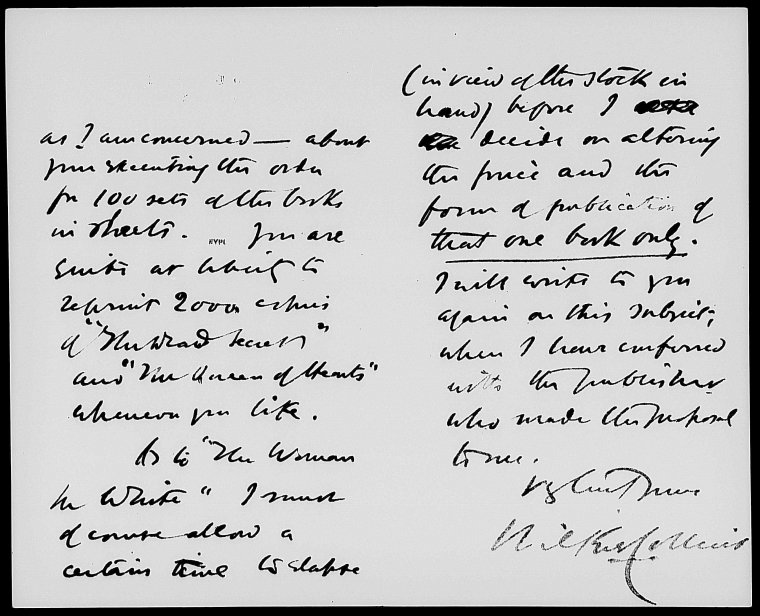 as I am concerned — about
your executing the order
for 100 sets of the books
in sheets. You are
quite at liberty to
reprint 2000 copies
of "The Dead Secret"
and "The Queen of Hearts"
whenever you like.
As to "The Woman
in White" I must
of course allow a
certain time to elapse
(in view of the stock in
hand) before I
decide on altering
the price and the
form of publication of
that one book only.
I will write to you
again on this subject,
when I have conferred
with the publisher
who made the proposal
to me.
Vy truly yours
Wilkie Collins